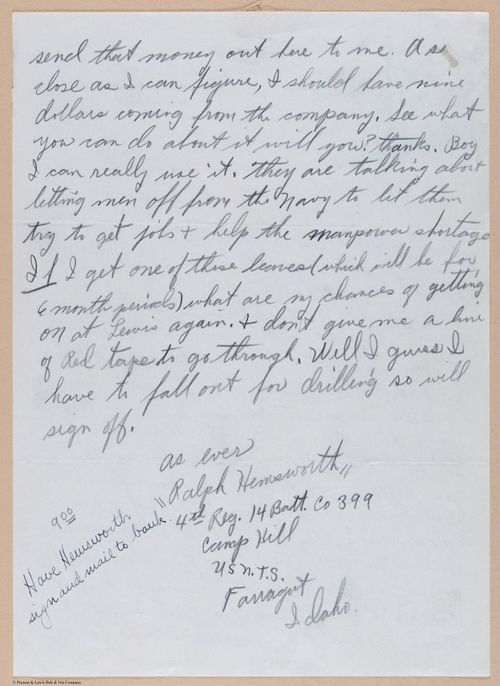 send that money out here to me. As
close as I can figure, I should have nine
dollars coming from the company. See what
you can do about it will you? thanks. Boy
I can really use it. They are talking about
letting men off from the Navy to let them
try to get jobs + help the manpower shortage
If I get one of these leaves (which will be for
6 month periods) what are my chances of getting
on at Lewis again. + don't give me a line
of Red tape to go through. Well I guess I
have to fall out for drilling so will
sign off.
as ever
"Ralph Hemsworth"
4th Reg. 14 Batt. Co 399
Camp Hill
U S N. T. S.
Farragut
Idaho.
9.00
Have Hemsworth
sign and mail to bank.
© Pearson & Lewis Bolt & Nut Company